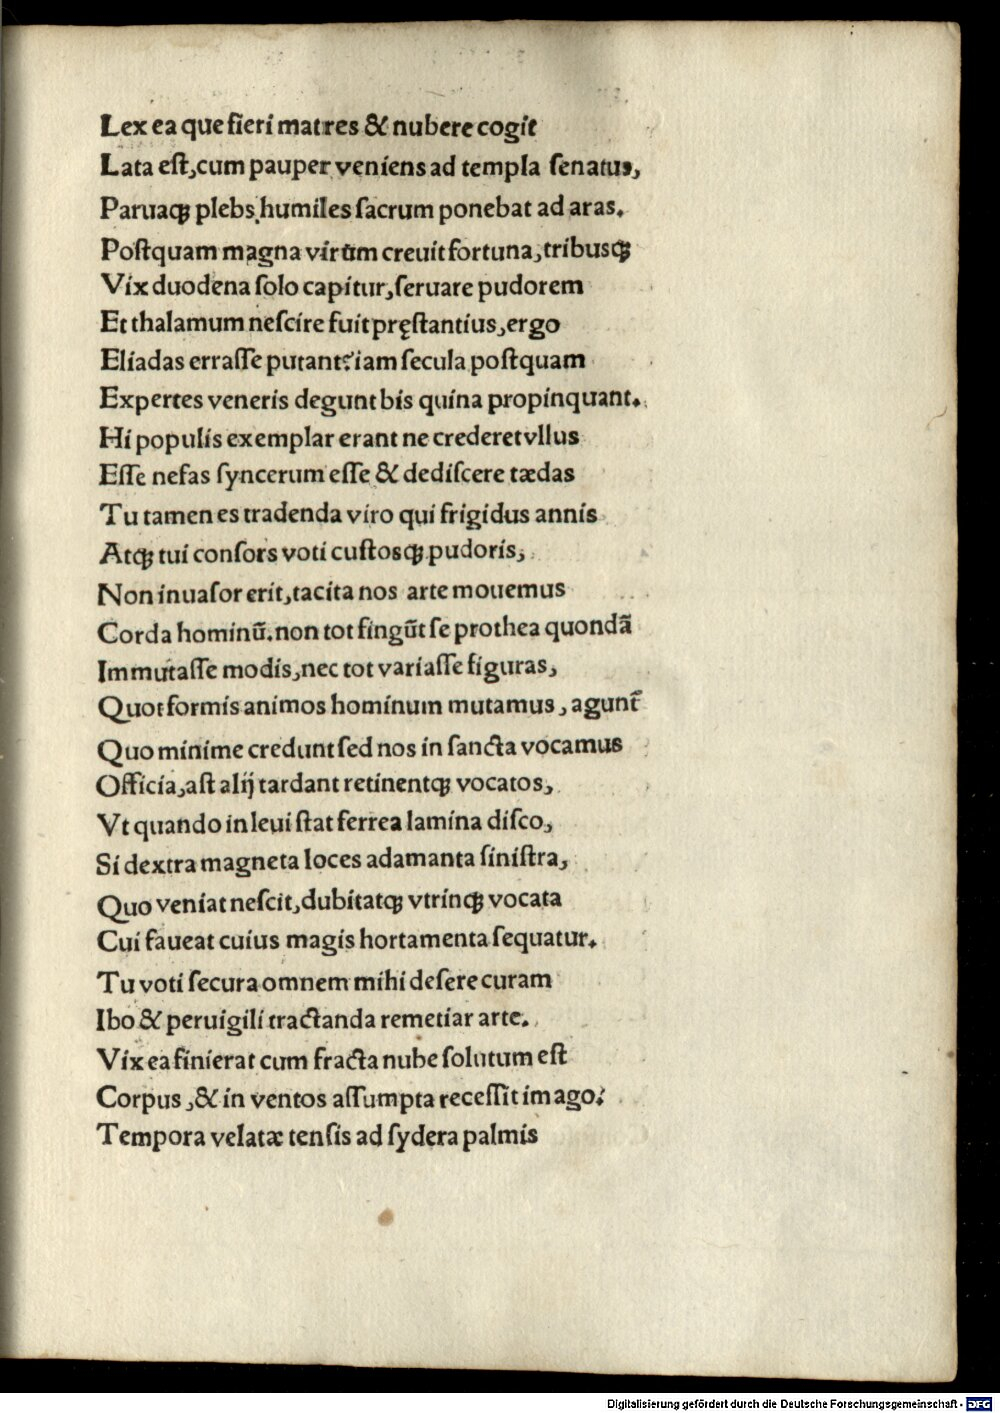 Lex ea que fieri matres & nubere cogit
Lata eſt, cum pauper veniens ad templa ſenatus,
Paruaqꝫ plebs humiles ſacrum ponebat ad aras.
Poſtquam magna virum creuit fortuna, tribusqꝫ
Vix duodena ſolo capitur, ſeruare pudorem
Et thalamum neſcire fuit pręſtantius, ergo
Eliadas erraſſe putant? iam ſecula poſtquam
Expertes veneris degunt bis quina propinquant.
Hi populis exemplar erant ne crederet vllus
Eſſe nefas ſyncerum eſſe & dediſcere tædas
Tu tamen es tradenda viro qui frigidus annis
Atqꝫ tui conſors voti cuſtosqꝫ pudoris,
Non inuaſor erit, tacita nos arte mouemus
Corda hominū. non tot fingūt ſe prothea quondā
Immutaſſe modis, nec tot variaſſe figuras,
Quot formis animos hominum mutamus, agunt᷑
Quo minime credunt ſed nos in ſancta vocamus
Officia, aſt alij tardant retinentqꝫ vocatos,
Vt quando in leui ſtat ferrea lamina diſco,
Si dextra magneta loces adamanta ſiniſtra,
Quo veniat neſcit, dubitatqꝫ vtrinqꝫ vocata
Cui faueat cuius magis hortamenta ſequatur.
Tu voti ſecura omnem mihi deſere curam
Ibo & peruigili tractanda remetiar arte.
Vix ea finierat cum fracta nube ſolutum eſt
Corpus, & in ventos aſſumpta receſſit imago?
Tempora velatæ tenſis ad ſydera palmis
Digitalisierung gefördert durch die Deutsche Forschungsgemeinschaft - DFG